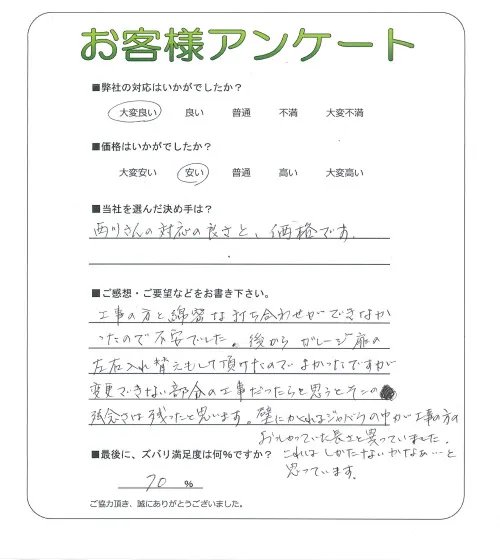 お客様アンケート
■弊社の対応はいかがでしたか？
大変良い 良い 普通 不満 大変不満
■価格はいかがでしたか？
大変安い 安い 普通 高い 大変高い
■当社を選んだ決め手は？
西川さんの対応の良さと、価格です。
■ご感想・ご要望などをお書き下さい。
工事の方と綿密な打ち合わせができなか
ったので不安でした。後からガレージ扉の
左右入れ替えもして頂けたのでよかったですが
変更できない部分の工事だったらと思うとその
残念さは残ったと思います。壁にかくれるジャバラの巾が工事の方の
おしゃっていた長さと異っていました。
これはしかたないかなぁ…と
思っています。
■最後に、ズバリ満足度は何%ですか？
70 %
ご協力頂き、誠にありがとうございました。